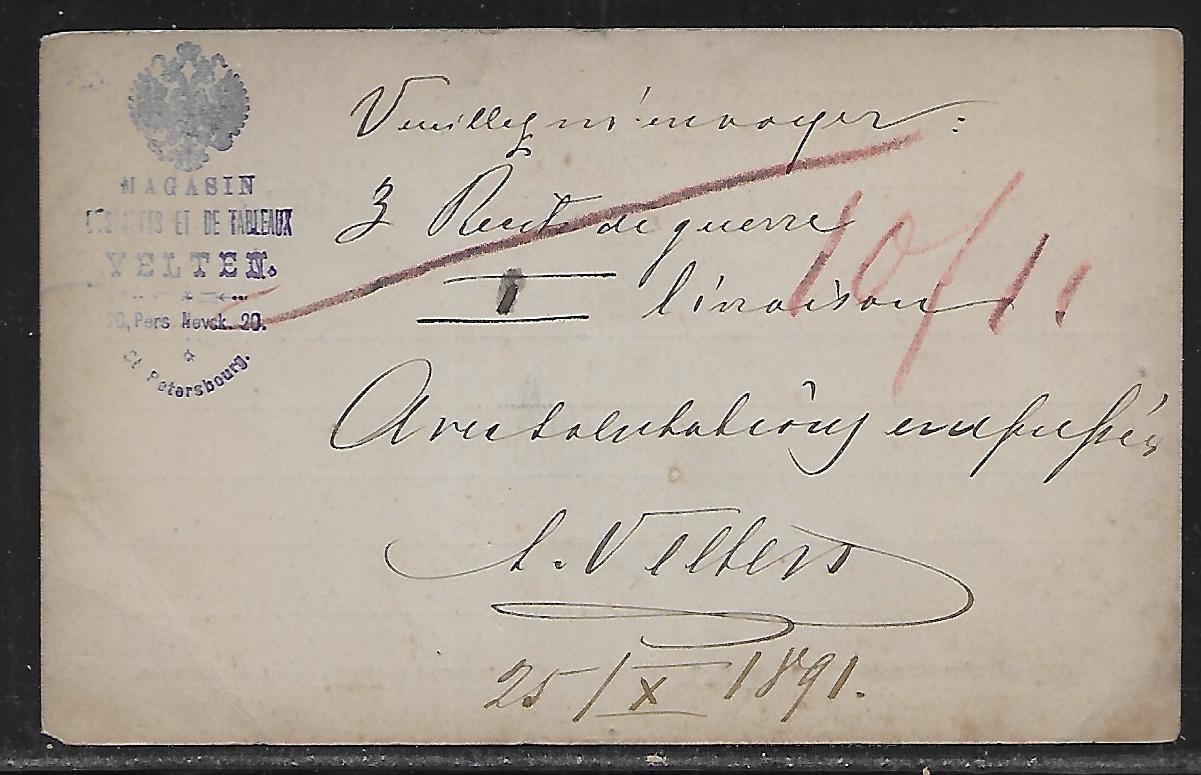 MAGASIN
ET DE TABLEAUX
VELTEN.
20, Pers. Nevck. 20.
St Petersbourg.
Veuillez m'envoyer :
3 Recits de guerre
I livraison
10/11.
Avec salutations empressées
A. Velten
25/X 1891.